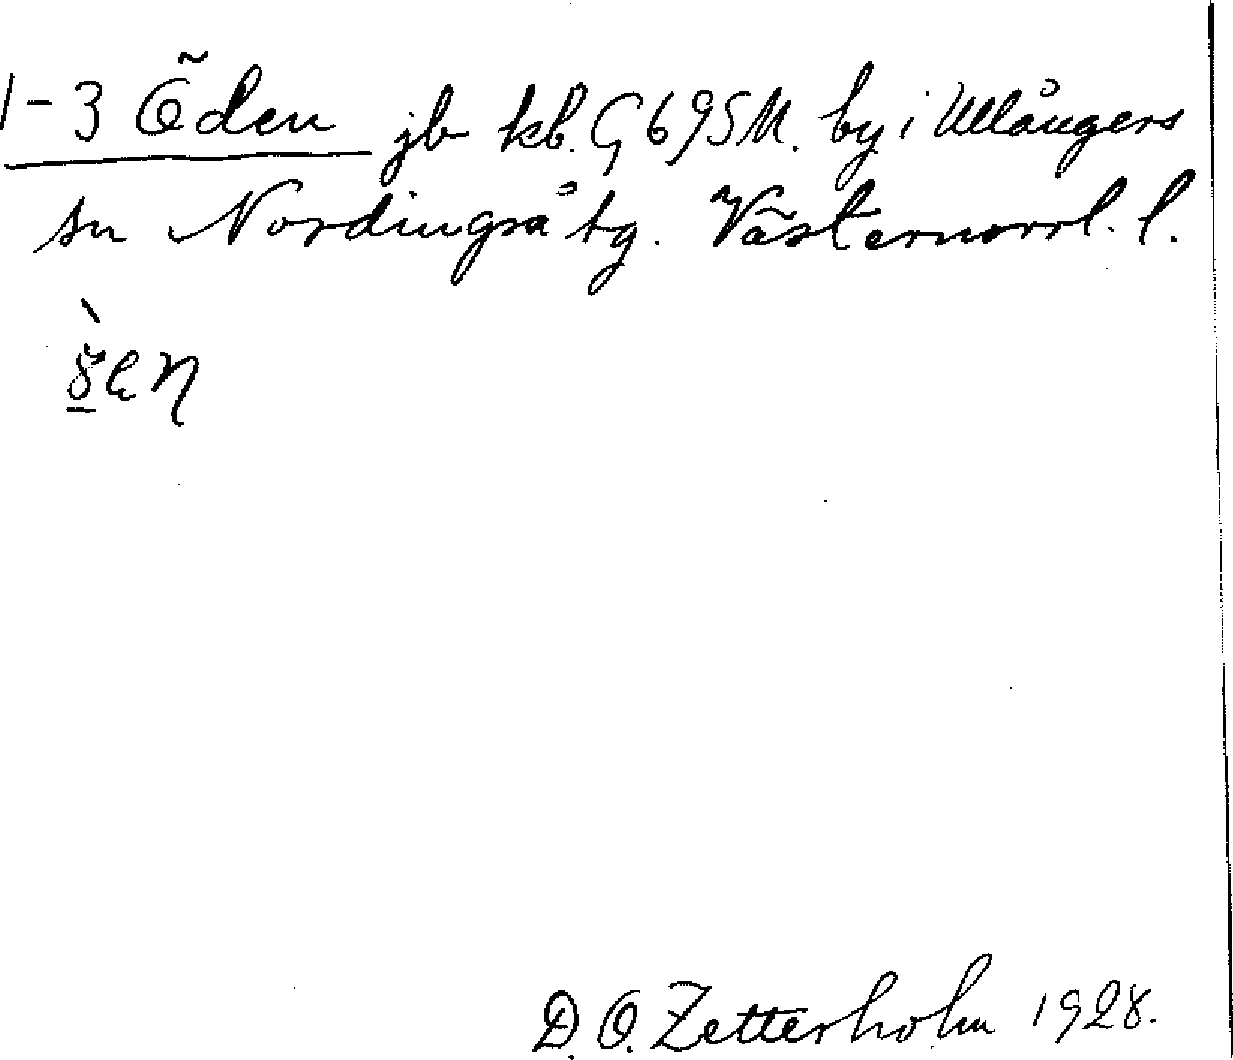 1-3 Öden jb kb. G 695 M. by i Ullångers
sn Nordingrå tg. Västernorrl. l.
D. O. Zetterholm 1928.